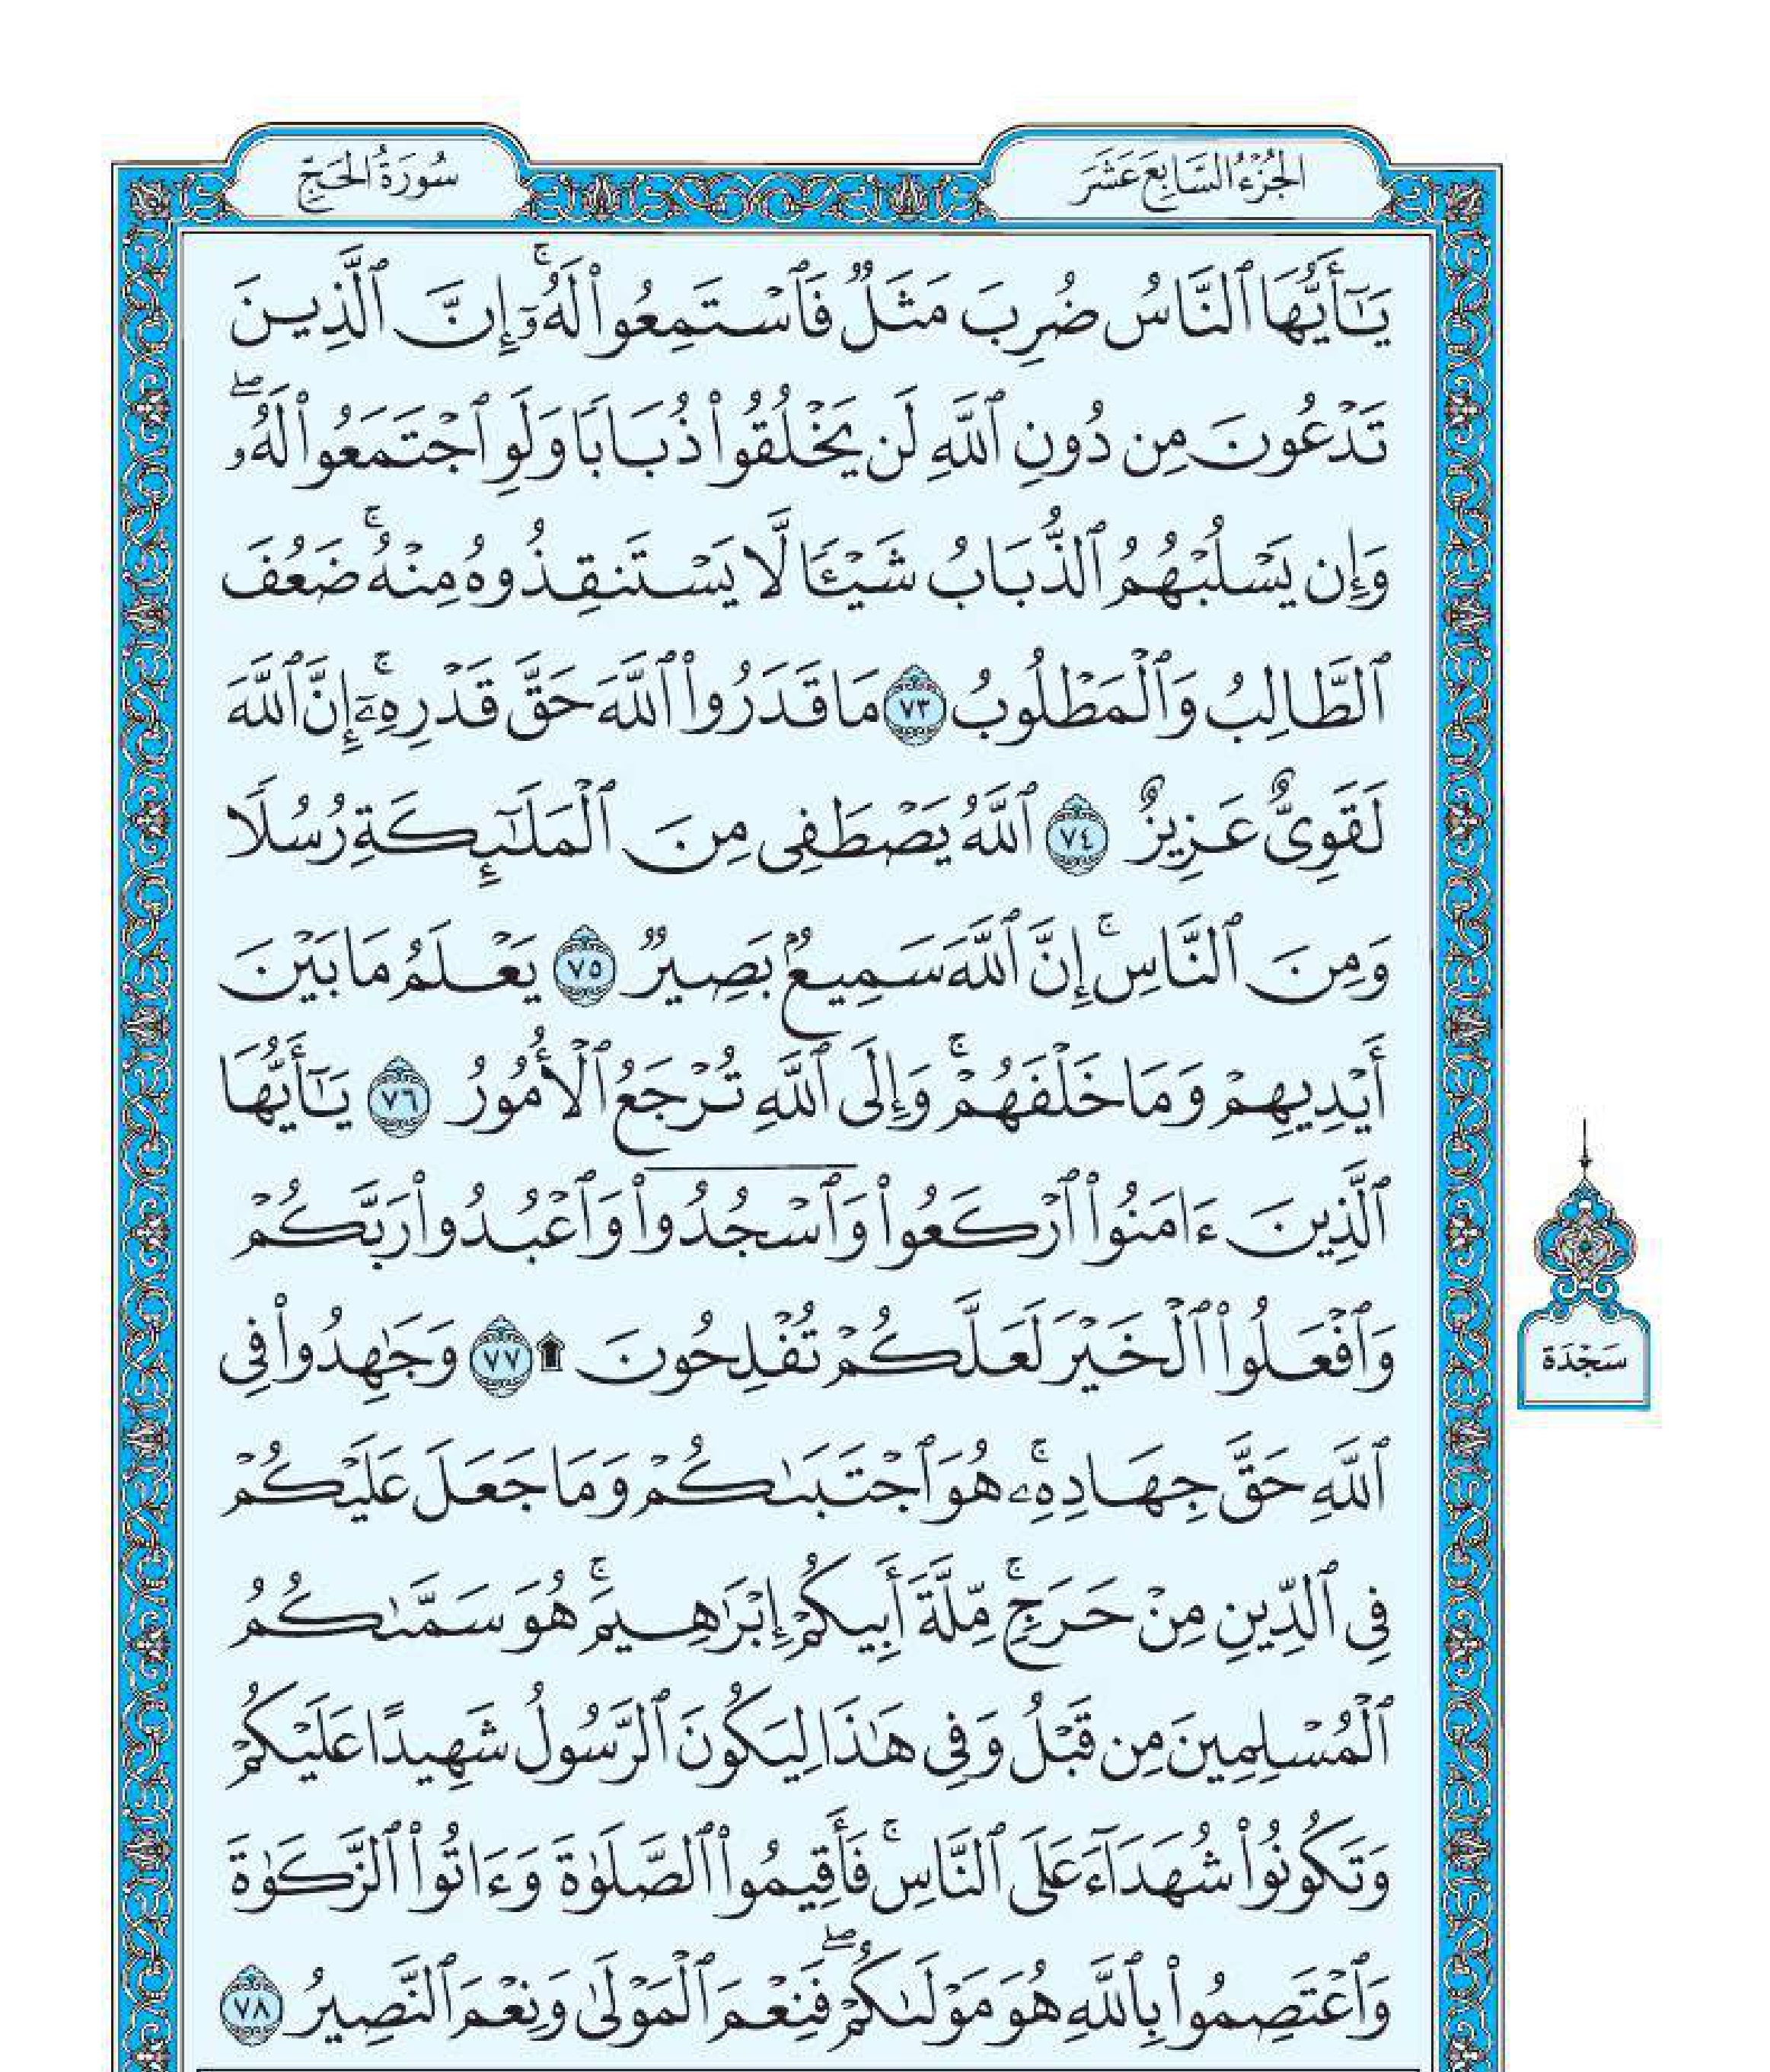 الجُزْءُ السَّابِعَ عَشَرَ
سُورَةُ الحَجِّ
يَـٰٓأَيُّهَا ٱلنَّاسُ ضُرِبَ مَثَلٞ فَٱسۡتَمِعُواْ لَهُۥٓۚ إِنَّ ٱلَّذِينَ
تَدۡعُونَ مِن دُونِ ٱللَّهِ لَن يَخۡلُقُواْ ذُبَابٗا وَلَوِ ٱجۡتَمَعُواْ لَهُۥۖ
وَإِن يَسۡلُبۡهُمُ ٱلذُّبَابُ شَيۡـٔٗا لَّا يَسۡتَنقِذُوهُ مِنۡهُۚ ضَعُفَ
ٱلطَّالِبُ وَٱلۡمَطۡلُوبُ ٧٣ مَا قَدَرُواْ ٱللَّهَ حَقَّ قَدۡرِهِۦٓۚ إِنَّ ٱللَّهَ
لَقَوِيٌّ عَزِيزٌ ٧٤ ٱللَّهُ يَصۡطَفِي مِنَ ٱلۡمَلَـٰٓئِكَةِ رُسُلٗا
وَمِنَ ٱلنَّاسِۚ إِنَّ ٱللَّهَ سَمِيعُۢ بَصِيرٞ ٧٥ يَعۡلَمُ مَا بَيۡنَ
أَيۡدِيهِمۡ وَمَا خَلۡفَهُمۡۚ وَإِلَى ٱللَّهِ تُرۡجَعُ ٱلۡأُمُورُ ٧٦ يَـٰٓأَيُّهَا
ٱلَّذِينَ ءَامَنُواْ ٱرۡكَعُواْ وَٱسۡجُدُواْ وَٱعۡبُدُواْ رَبَّكُمۡ
وَٱفۡعَلُواْ ٱلۡخَيۡرَ لَعَلَّكُمۡ تُفۡلِحُونَ ۩ ٧٧ وَجَٰهِدُواْ فِي
سَجْدَة
ٱللَّهِ حَقَّ جِهَادِهِۦۚ هُوَ ٱجۡتَبَىٰكُمۡ وَمَا جَعَلَ عَلَيۡكُمۡ
فِي ٱلدِّينِ مِنۡ حَرَجٖۚ مِّلَّةَ أَبِيكُمۡ إِبۡرَٰهِيمَۚ هُوَ سَمَّىٰكُمُ
ٱلۡمُسۡلِمِينَ مِن قَبۡلُ وَفِي هَٰذَا لِيَكُونَ ٱلرَّسُولُ شَهِيدًا عَلَيۡكُمۡ
وَتَكُونُواْ شُهَدَآءَ عَلَى ٱلنَّاسِۚ فَأَقِيمُواْ ٱلصَّلَوٰةَ وَءَاتُواْ ٱلزَّكَوٰةَ
وَٱعۡتَصِمُواْ بِٱللَّهِ هُوَ مَوۡلَىٰكُمۡۖ فَنِعۡمَ ٱلۡمَوۡلَىٰ وَنِعۡمَ ٱلنَّصِيرُ ٧٨